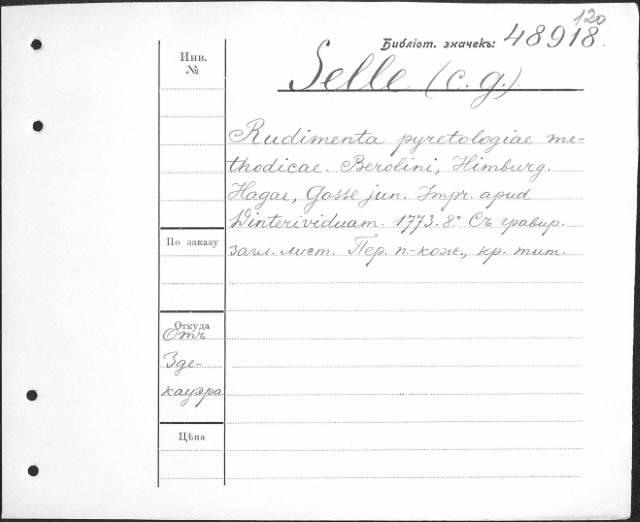 120
Библіот. значекъ: 48918.
Инв. №
Selle (c. g.)
Rudimenta pyretologiae me-
thodicae. Berolini, Himburg.
Hagae, Gosse jun. Impr. apud
Winterividuam. 1773. 8.° Съ гравир.
загл. лист. Пер. п.-кож., кр. тит.
По заказу
Откуда
Отъ
Зде-
кауэра
Цѣна